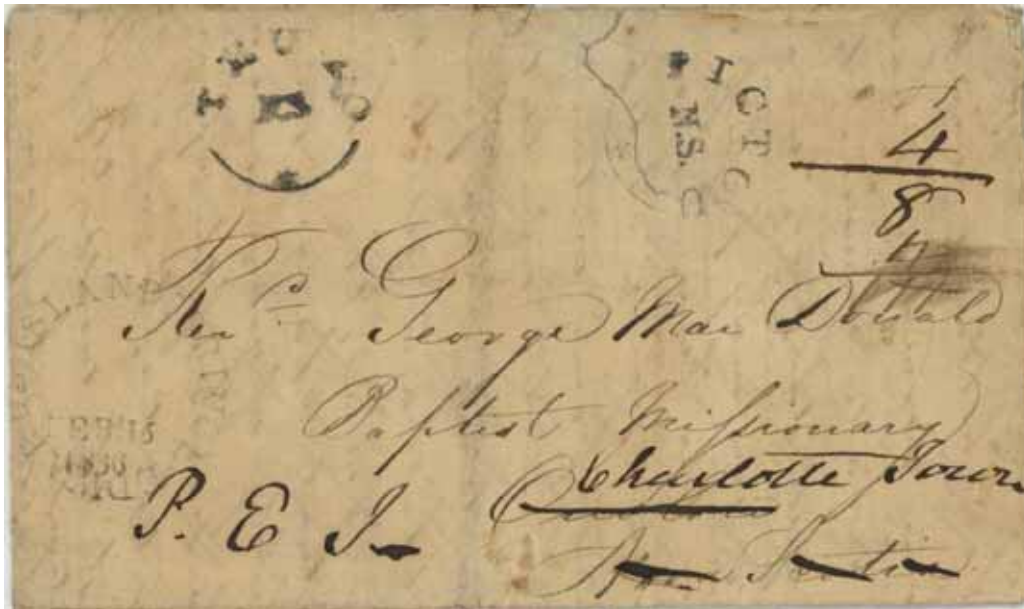 TRURO
PICTO
N.S.
4
8
4
Revd. George Mac Donald
Baptist Missionary
Charlotte Town
P. E. I.
ISLAND
FEB 15
1836